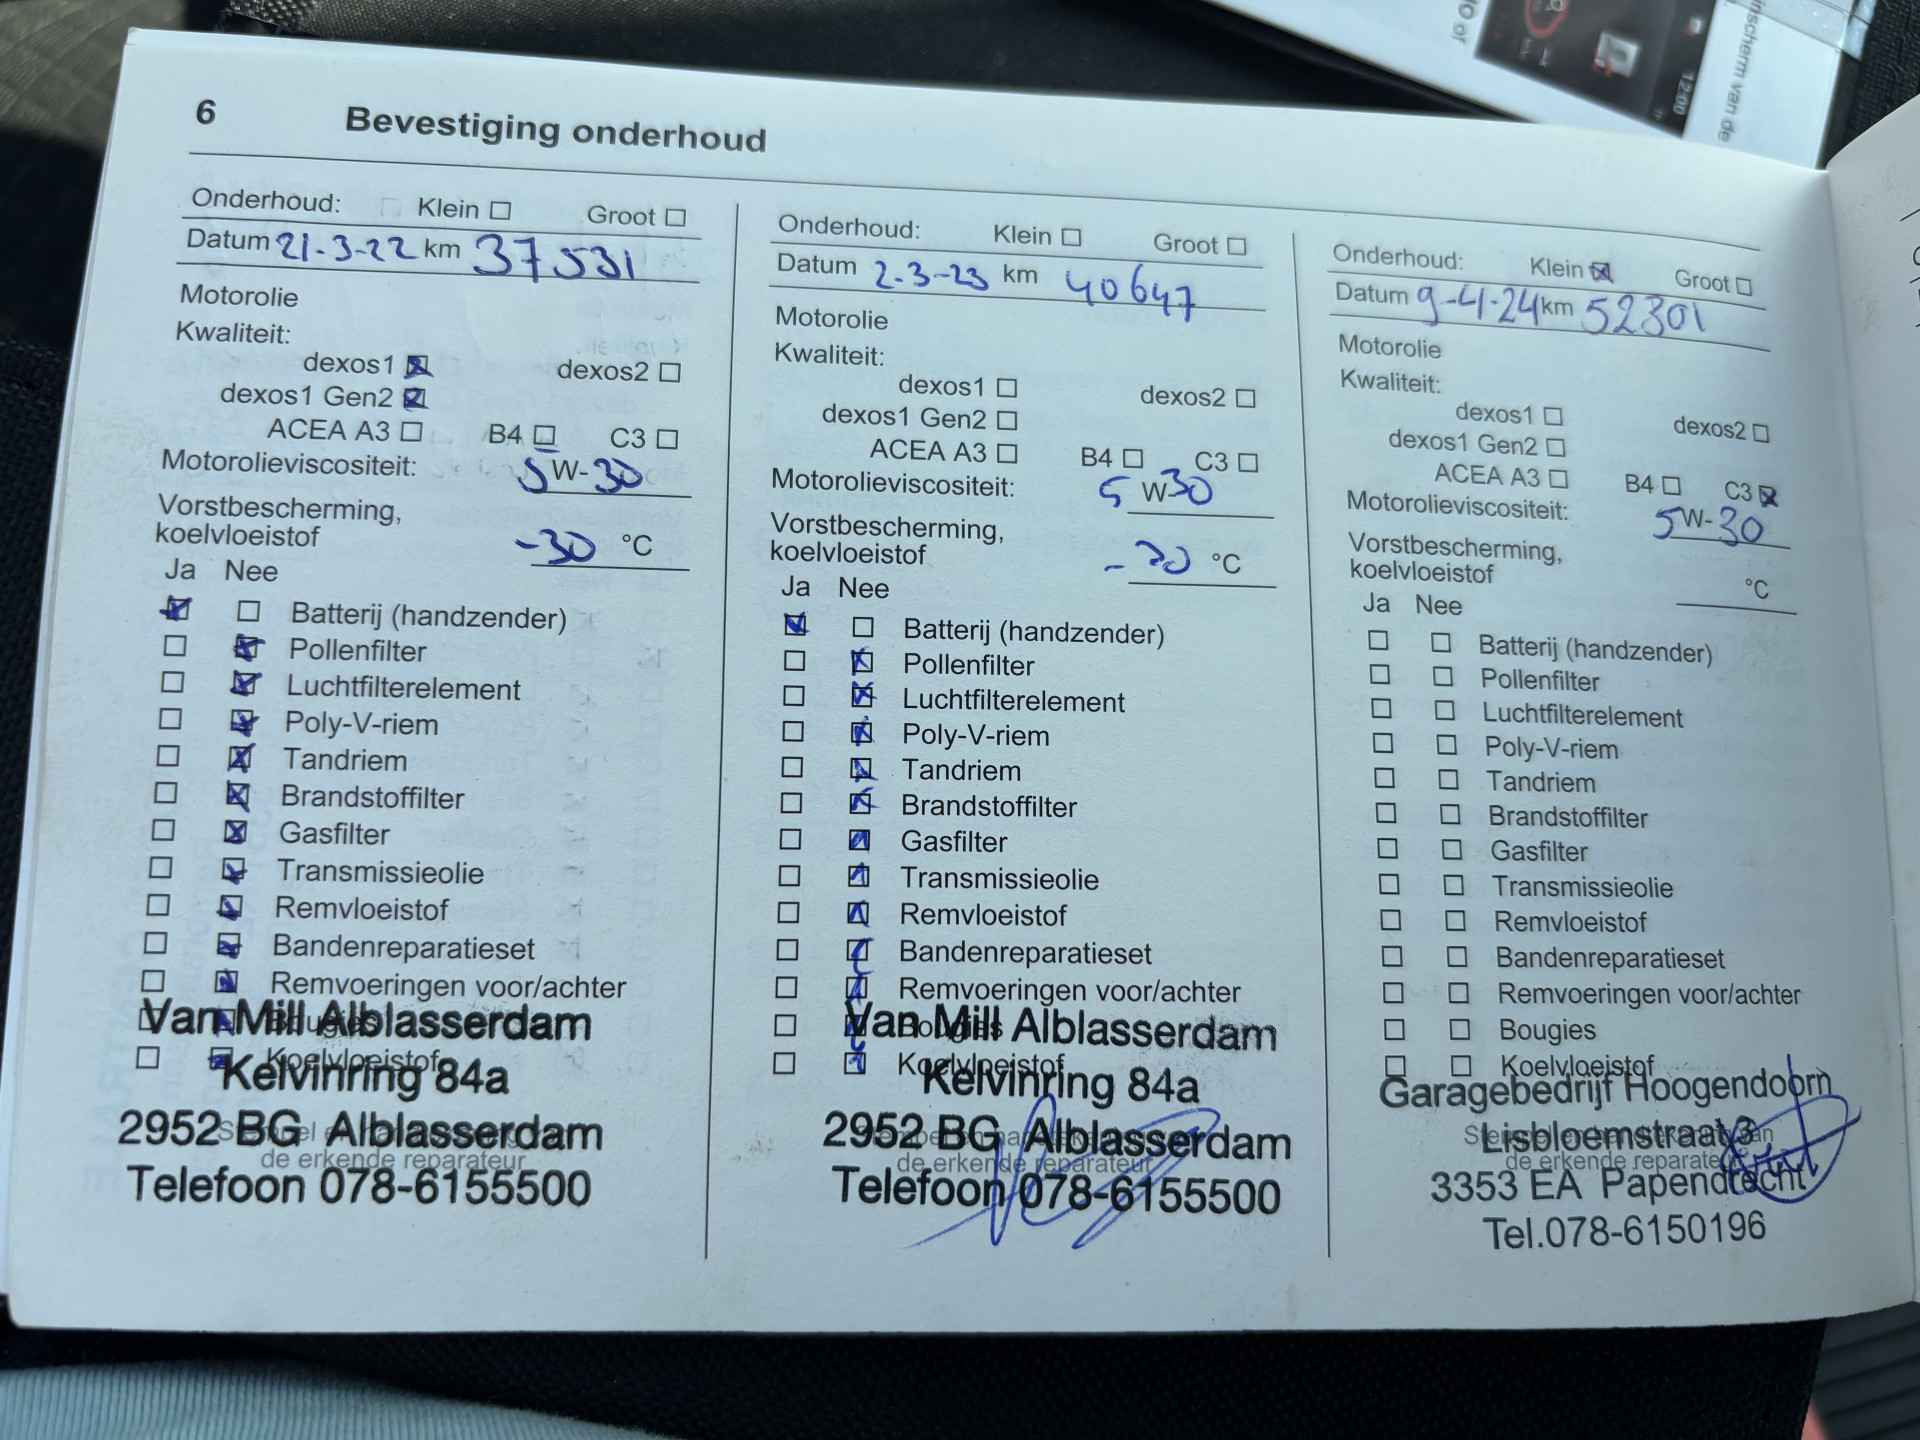 6 Bevestiging onderhoud
Onderhoud: Klein Groot
Datum 21-3-22 km 37531
Motorolie
Kwaliteit:
dexos1 dexos2
dexos1 Gen2
ACEA A3 B4 C3
Motorolieviscositeit: 5 W-30
Vorstbescherming,
koelvloeistof -30 °C
Ja Nee
Batterij (handzender)
Pollenfilter
Luchtfilterelement
Poly-V-riem
Tandriem
Brandstoffilter
Gasfilter
Transmissieolie
Remvloeistof
Bandenreparatieset
Remvoeringen voor/achter
Bougies
Van Mill Alblasserdam
Koelvloeistof
Kelvinring 84a
2952 BG Alblasserdam
de erkende reparateur
Telefoon 078-6155500
Onderhoud: Klein Groot
Datum 2-3-23 km 40647
Motorolie
Kwaliteit:
dexos1 dexos2
dexos1 Gen2
ACEA A3 B4 C3
Motorolieviscositeit: 5 W 30
Vorstbescherming,
koelvloeistof °C
Ja Nee
Batterij (handzender)
Pollenfilter
Luchtfilterelement
Poly-V-riem
Tandriem
Brandstoffilter
Gasfilter
Transmissieolie
Remvloeistof
Bandenreparatieset
Remvoeringen voor/achter
Bougies
Van Mill Alblasserdam
Koelvloeistof
Kelvinring 84a
2952 BG Alblasserdam
de erkende reparateur
Telefoon 078-6155500
Onderhoud: Klein Groot
Datum 9-4-24 km 52301
Motorolie
Kwaliteit:
dexos1 dexos2
dexos1 Gen2
ACEA A3 B4 C3
Motorolieviscositeit: 5 W-30
Vorstbescherming,
koelvloeistof °C
Ja Nee
Batterij (handzender)
Pollenfilter
Luchtfilterelement
Poly-V-riem
Tandriem
Brandstoffilter
Gasfilter
Transmissieolie
Remvloeistof
Bandenreparatieset
Remvoeringen voor/achter
Bougies
Koelvloeistof
Garagebedrijf Hoogendoorn
Lisbloemstraat 3
de erkende reparateur
3353 EA Papendrecht
Tel.078-6150196
12:00
van de